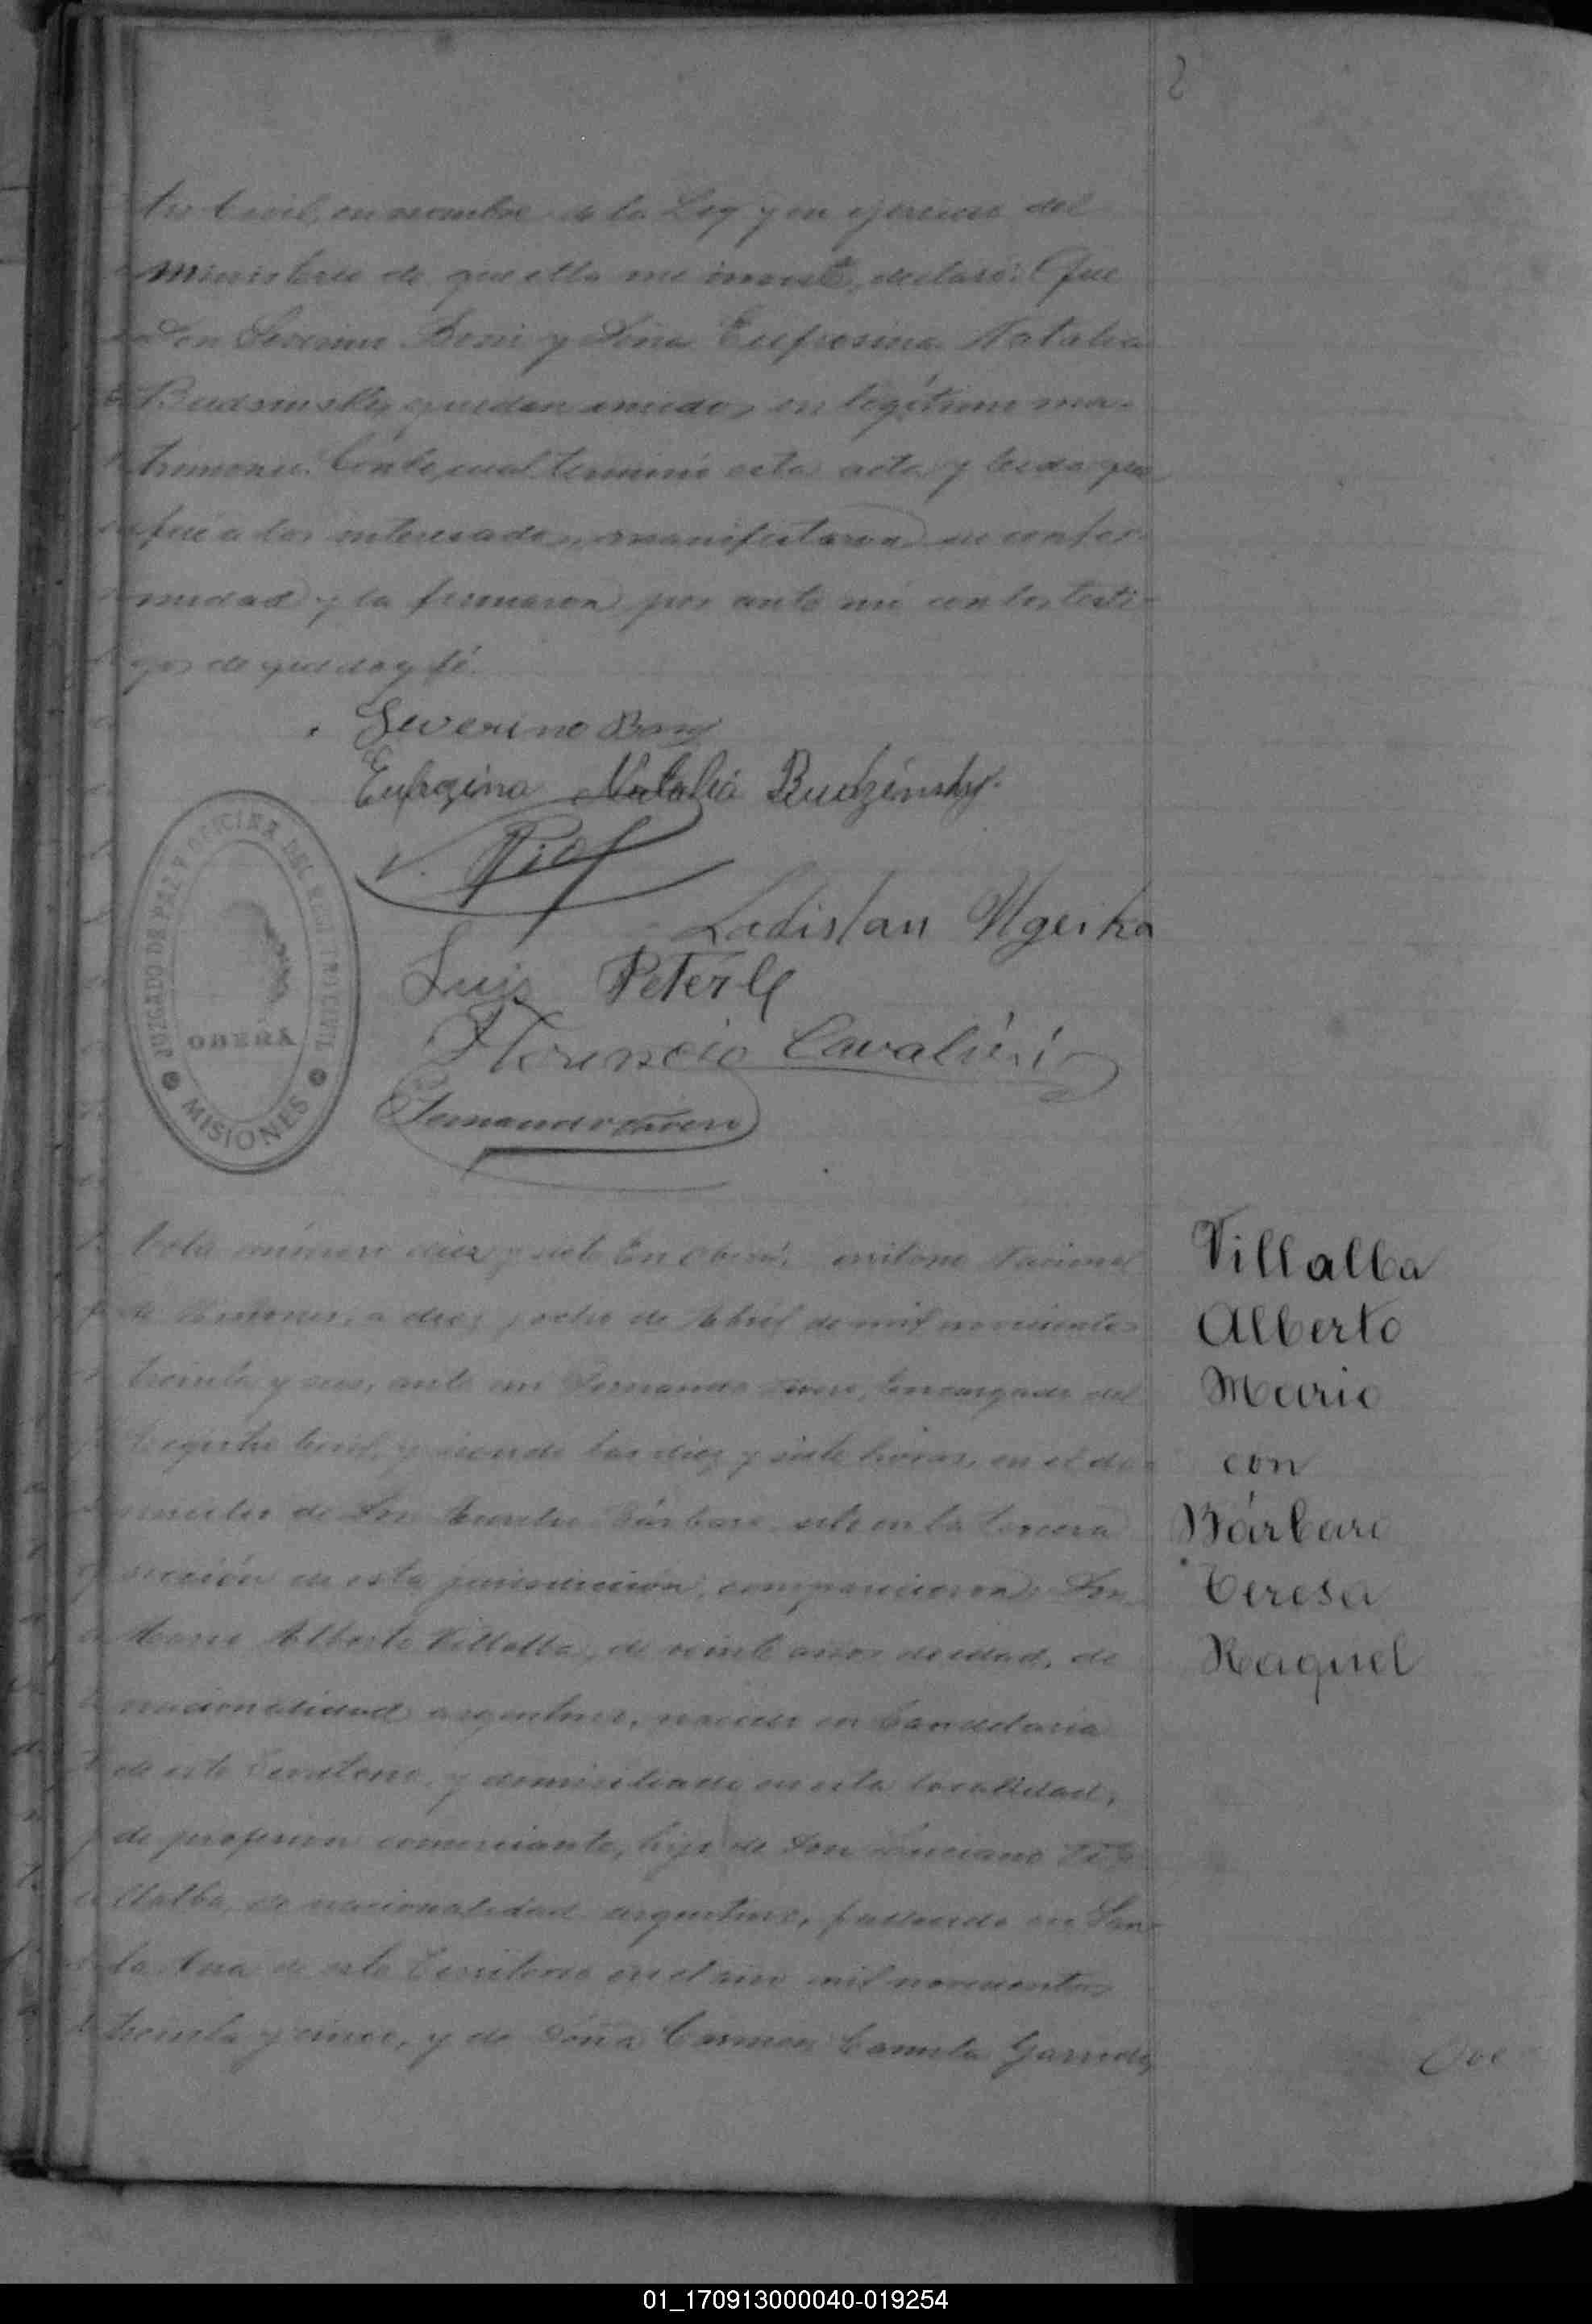 tro Civil, en nombre de la Ley y en ejercicio del
Ministerio de que ella me inviste, declaro: Que
Don Severino Boni y Doña Eufrosina Natalia
Budsinsky quedan unidos en legítimo ma-
trimonio. Con lo cual terminó esta acta y leida que
fué a los interesados, manifestaron su confor-
midad y la firmaron por ante mi con los testi-
gos de que doy fé.
Severino
Eufrozina Natalia Budzinsky.
V.
Ladislan
Luis Peterle
Florencio Cavalieri
Fernando
JUZGADO DE PAZ Y OFICINA DEL REGISTRO CIVIL
OBERÁ
MISIONES
Villalba
Alberto
Mario
con
Bárbaro
Teresa
Raquel
Acta número diez y siete En Oberá, Nacional
de Misiones, a diez y ocho de Abril de mil novecientos
treinta y seis, ante mi Fernando Encargado del
Registro Civil, y siendo las diez y siete horas, en el do-
micilio de Don Bárbaro, sito en la tercera
sección de esta jurisdicción, comparecieron: Don
Mario Alberto Villalba, de veinte años de edad, de
nacionalidad argentino, nacido en Candelaria
de este Territorio, y domiciliado en esta localidad,
de profesión comerciante, hijo de Don Luciano Vi-
llalba, de nacionalidad argentino, fallecido en San-
ta Ana de este Territorio en el año mil novecientos
treinta y cinco, y de Doña Carmen
01_170913000040-019254